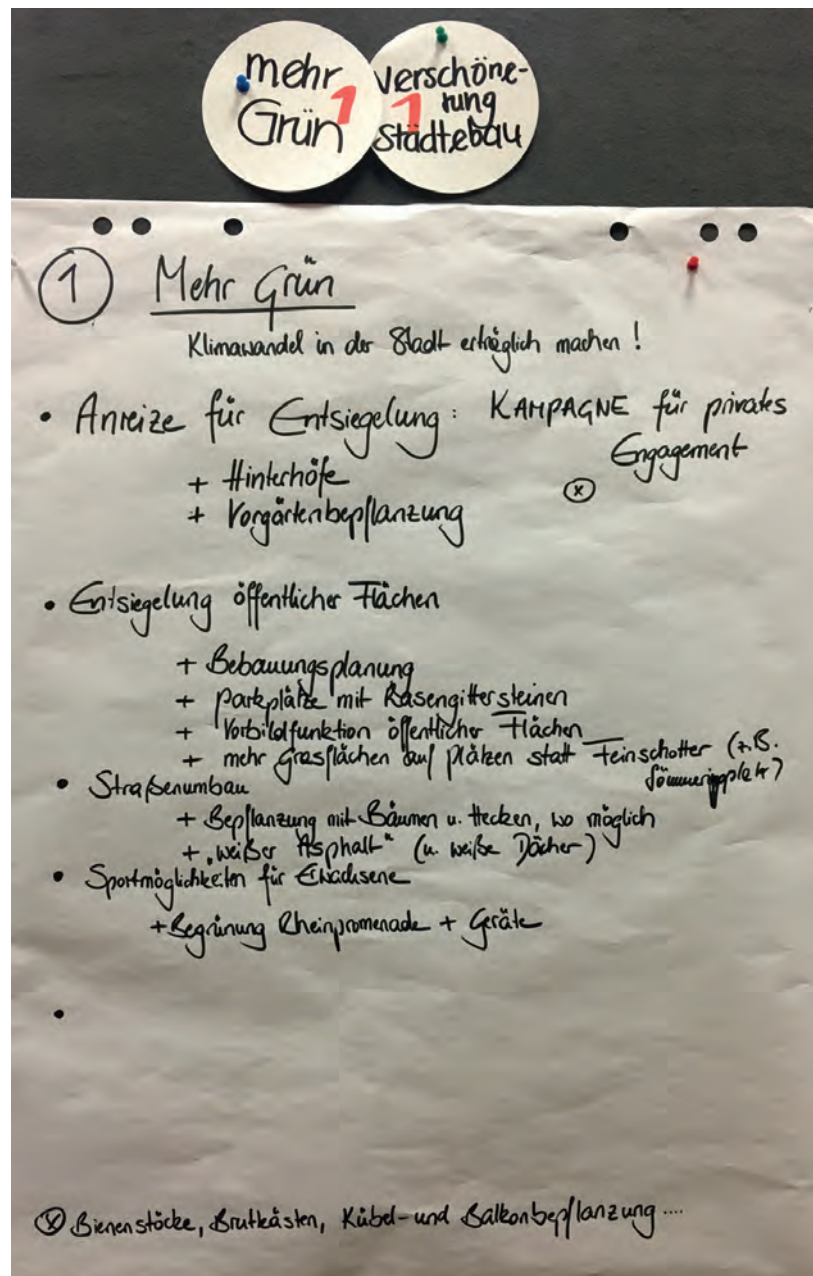 mehr
Grün 1
Verschöne-
rung
1
Städtebau
1 Mehr Grün
Klimawandel in der Stadt erträglich machen !
• Anreize für Entsiegelung : KAMPAGNE für privates
Engagement
+ Hinterhöfe
x
+ Vorgärtenbepflanzung
• Entsiegelung öffentlicher Flächen
+ Bebauungsplanung
+ Parkplätze mit Rasengittersteinen
+ Vorbildfunktion öffentlicher Flächen
+ mehr Grasflächen auf Plätzen statt Feinschotter (z.B.
Sömmeringplatz)
• Straßenumbau
+ Bepflanzung mit Bäumen u. Hecken, wo möglich
+ „weißer Asphalt" (u. weiße Dächer)
• Sportmöglichkeiten für Erwachsene
+ Begrünung Rheinpromenade + Geräte
•
x Bienenstöcke, Brutkästen, Kübel- und Balkonbepflanzung ....